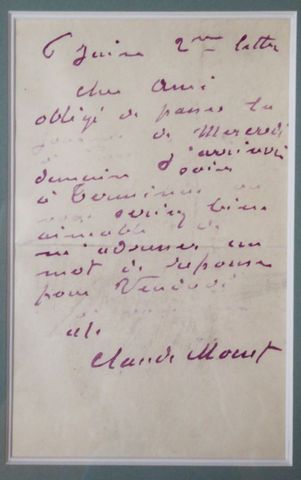 6 Juin 2me lettre
Cher Ami
obligé de passer la
journée de Mercredi
demain soir
à Terminus
seriez bien
aimable de
m'adresser un
mot de réponse
pour Vendredi
Claude Monet